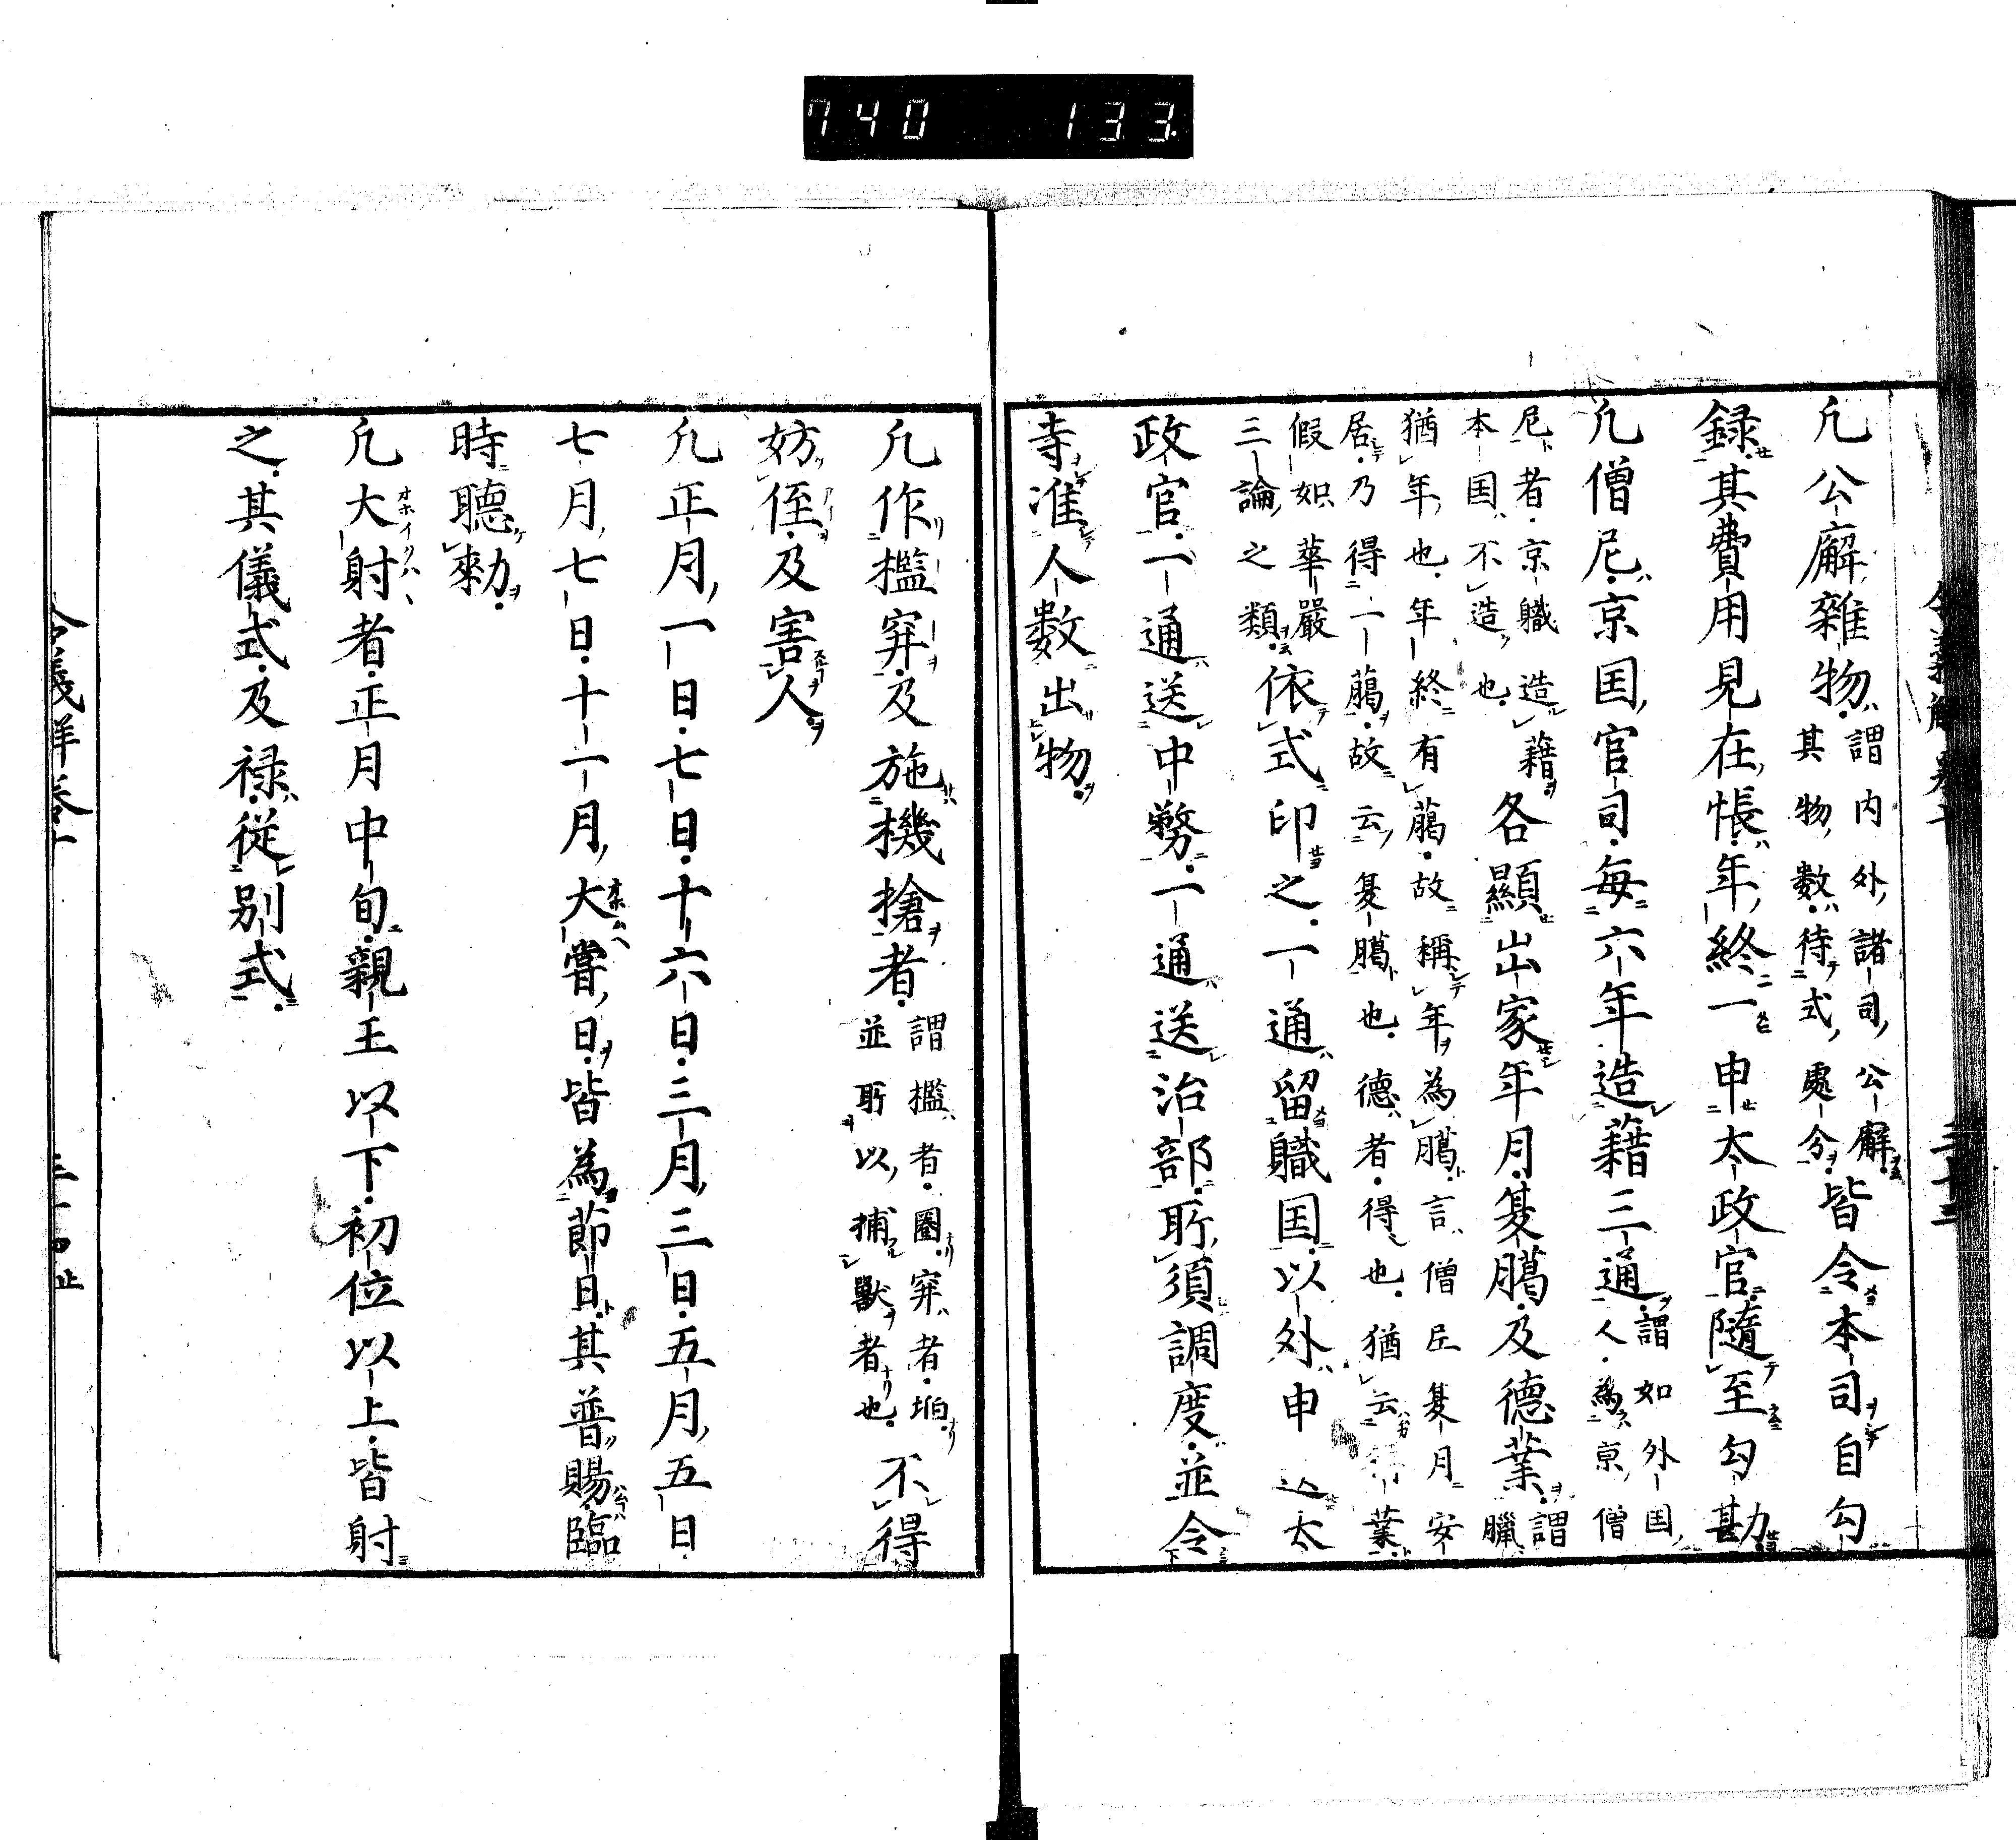 740 133
凢公廨雜物謂内外諸司公廨
其物数待式處分皆令本司自勾
録其費用見在帳年終一申太政官隨至勾勘
凢僧尼京国官司每六年造藉三通謂如外国
人為京僧
尼者京職造藉
本国不造也各顯出家年月夏臈及德業謂
臘
猶年也年終有臈故稱年為臈言僧尼夏月安
居乃得一臈故云夏臈也德者得也猶云 業
假如華嚴
三論之類依式印之一通留職国以外申送太
政官一通送中務一通送治部所須調度並令
寺准人数出物
凢作檻穽及施機搶者謂檻者圈穽者垍
並所以捕獸者也不得
妨侄及害人
凢正月一日七日十六日三月三日五月五日
七月七日十一月大嘗日皆為節日其普賜臨
時聽勅
凢大射者正月中旬親王以下初位以上皆射
之其儀式及禄從別式